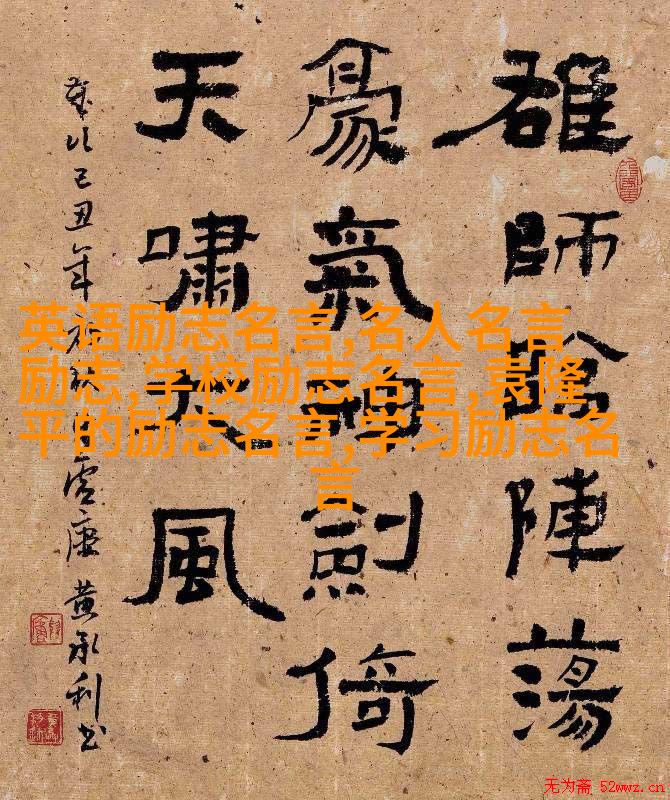 雄師陣蕩
豪氣劍倚
天嘯風
歲次己丑年 黄承利书
英语励志名言,名人名言
励志,学校励志名言,袁隆
平的励志名言,学习励志名
言
无为斋 52wwz.cn